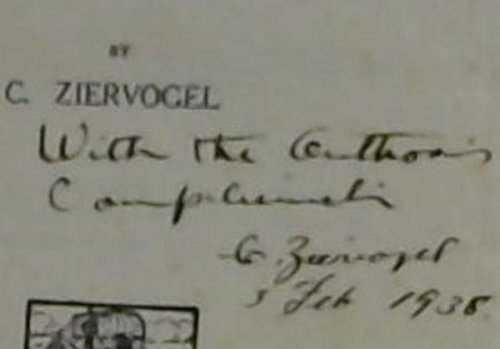 BY
C. ZIERVOGEL
With the Author's
Compliments
C. Ziervogel
3 Feb 1938.